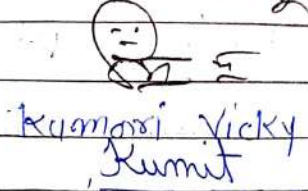 Kumari Vicky
Kumit